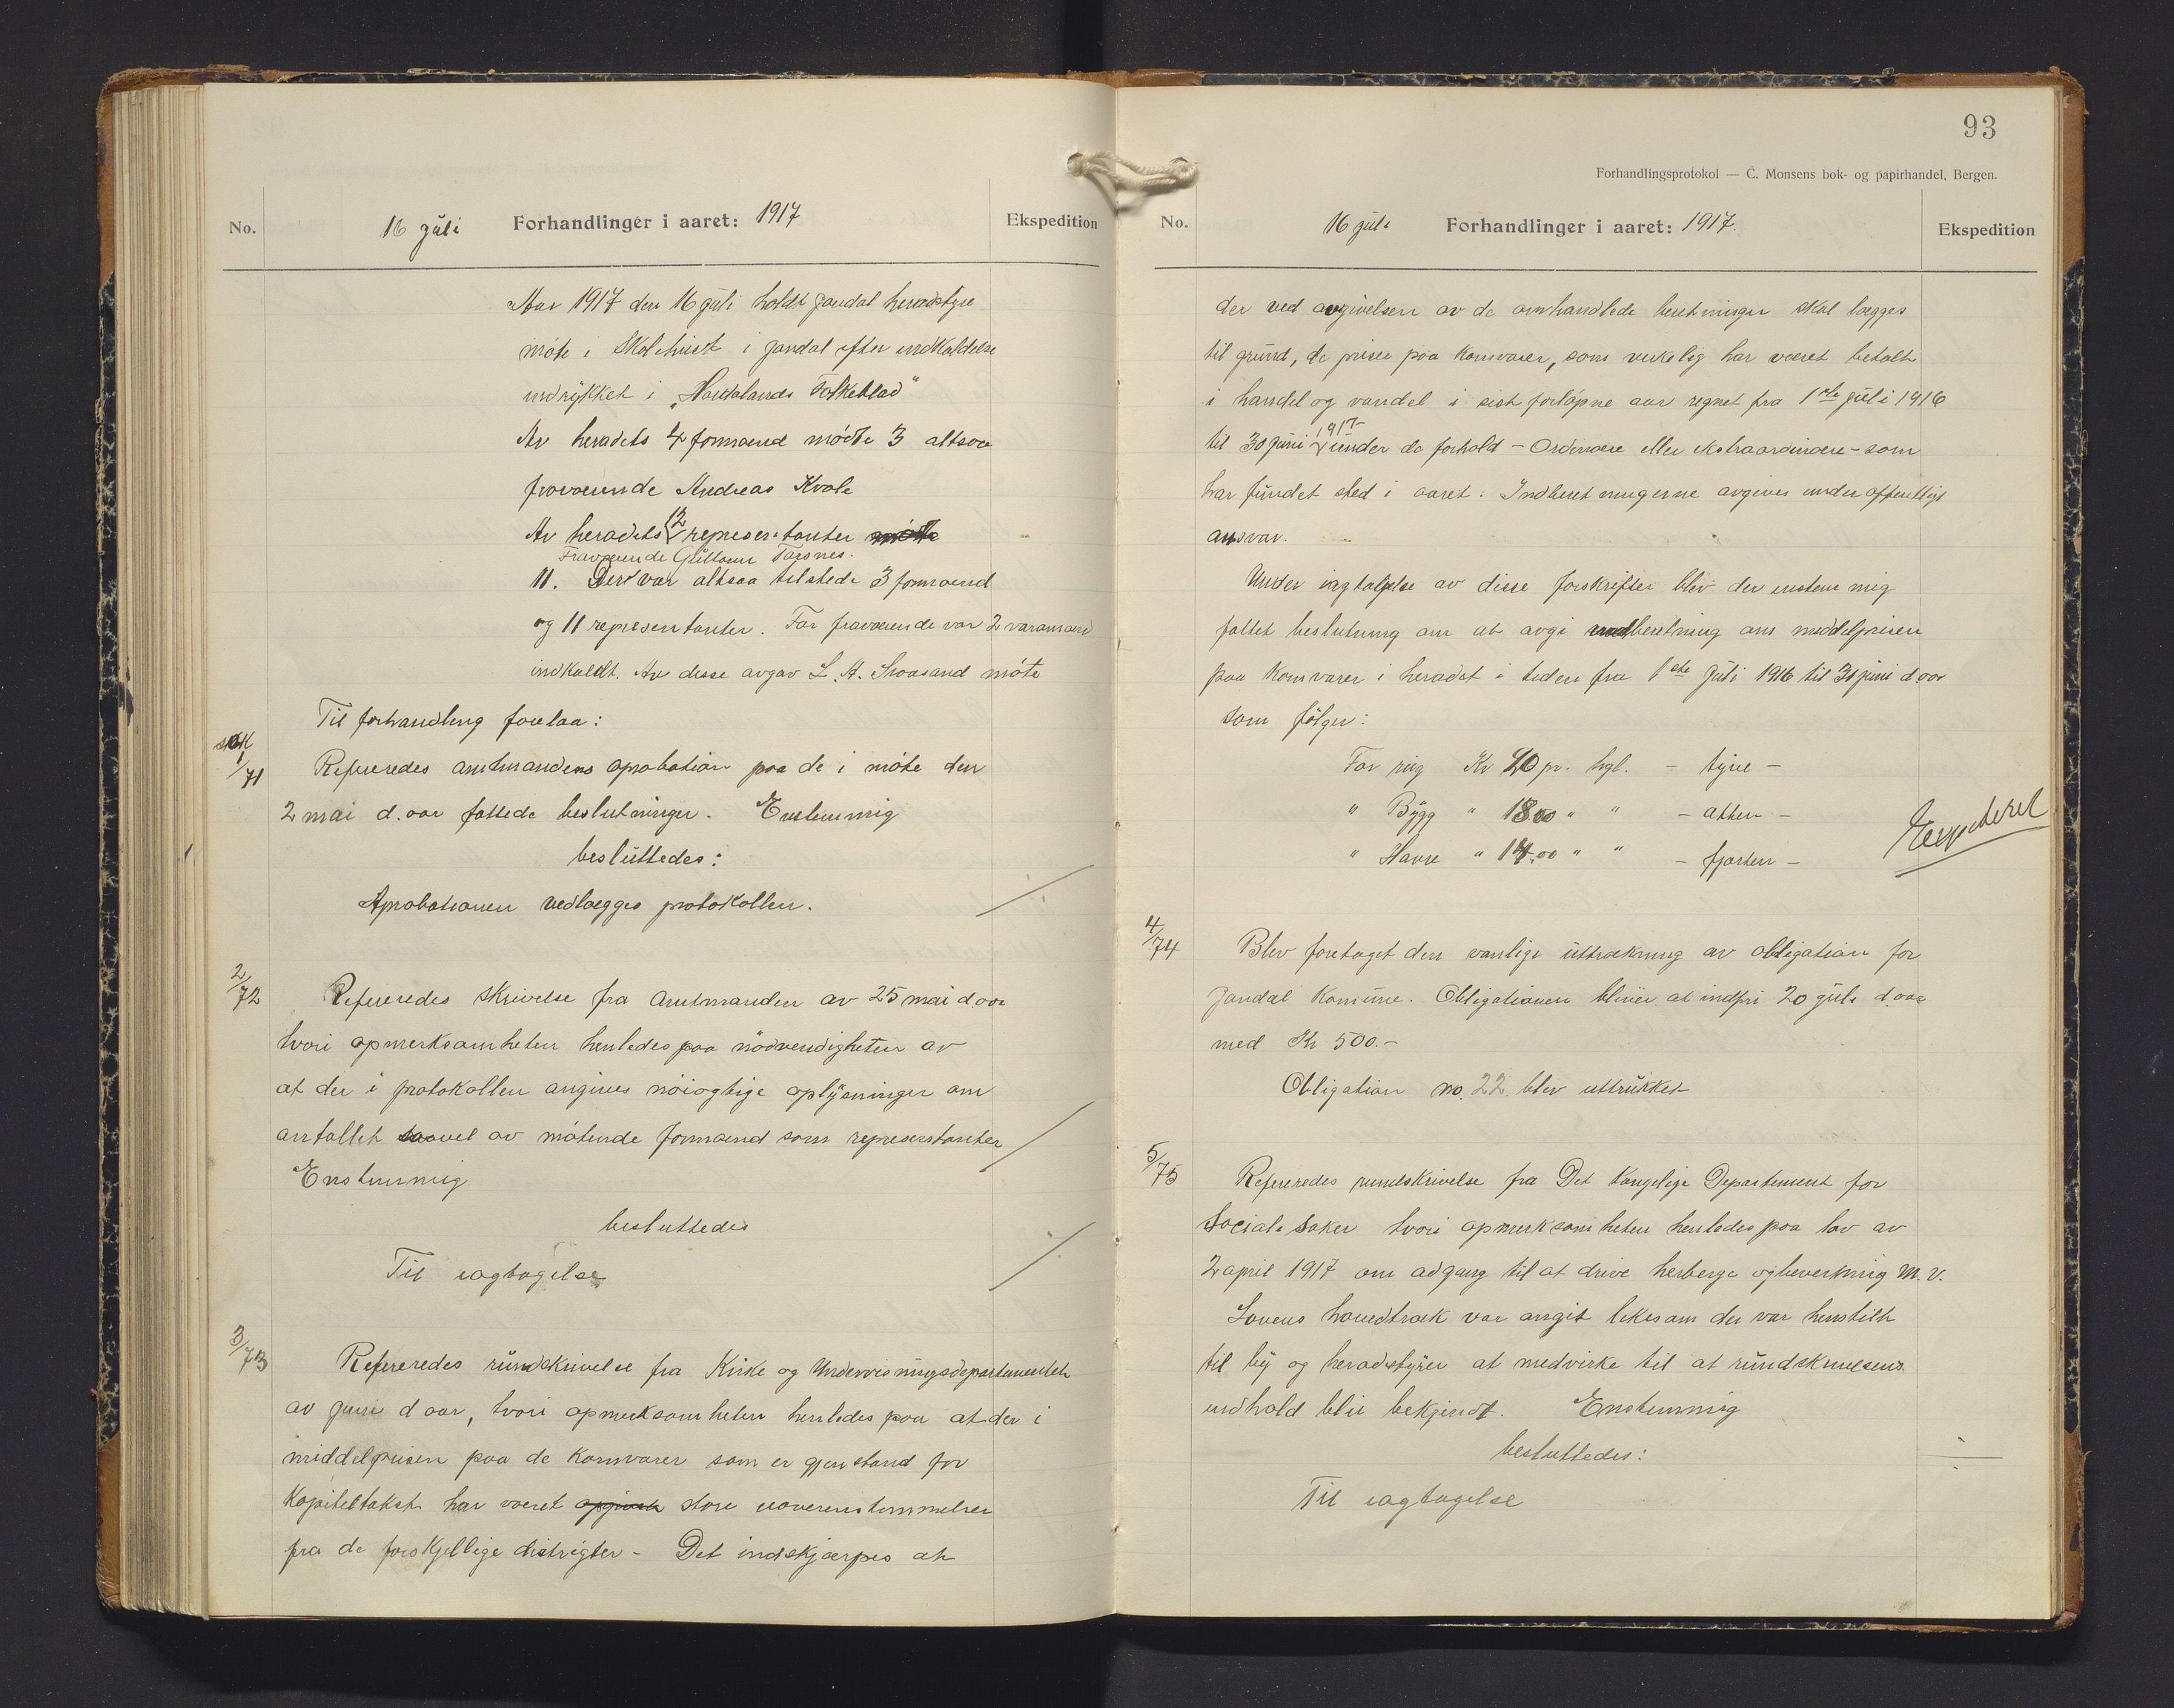 No.
16 juli Forhandlinger i aaret: 1917
Ekspedition
Aar 1917 den 16 juli holdt Jondal heradstyre
møte i Skolehuset i Jondal efter indkaldelse
indrykket i „Hordalands Folkeblad"
Av heradets 4 formænd møtte 3 altsaa
fraværende Andreas Kvale
Av heradets 12 representanter møtte
Fraværende Guttorm Torsnes.
11. Der var altsaa tilstede 3 formænd
og 11 representanter. For fraværende var 2 varamænd
indkaldt. Av disse avgav L. A. møte
Til forhandling forelaa:
sak
1/71 Refereredes amtmandens aprobation paa de i møte den
2 mai d. aar fattede beslutninger. Enstemmig
besluttedes:
Aprobationen vedlægges protokollen.
2/72 Refereredes skrivelse fra Amtmanden av 25 mai d. aar
hvori opmerksomheten henledes paa nödvendigheten av
at der i protokollen angives nöiagtige oplysninger om
antallet saavel av møtende formænd som representanter
Enstemmig
besluttedes
Til iagtagelse
3/73 Refereredes rundskrivelse fra Kirke og Undervisningsdepartementet
av juni d aar, hvori opmerksomheten henledes paa at der i
middelprisen paa de kornvarer som er gjenstand for
Kapiteltakst har været opgivet store uoverenstemmelser
fra de forskjellige distrigter - Det indskjærpes at
93
Forhandlingsprotokol — C. Monsens bok- og papirhandel, Bergen.
No.
16 juli Forhandlinger i aaret: 1917.
Ekspedition
der ved avgivelsen av de omhandlede beretninger skal lægges
til grund, de priser paa kornvarer, som virkelig har været betalt
i handel og vandel i sist forløpne aar regnet fra 1ste juli 1916
til 30 juni 1917 under de forhold - Ordinære eller ekstraordinære - som
har fundet sted i aaret: Indberetningerne avgives under offentligt
ansvar.
Under iagtagelse av disse forskrifter blev der enstemmig
fattet beslutning om at avgi indberetning om middelprisen
paa kornvarer i heradet i tiden fra 1ste juli 1916 til 30 juni d. aar
som følger:
For rug Kr 20 pr. hgl. - tyve -
" Bygg " 18.00 " " - atten -
" Havre " 14.00 " " - fjorten -
Expederet
4/74 Blev foretaget den vanlige uttrækning av obligation for
Jondal Komune. Obligationen bliver at indfri 20 juli d. aar
med Kr 500.-
Obligation no. 22 blev uttrukket
5/75 Refereredes rundskrivelse fra Det kongelige Departement for
Sociale Saker hvori opmerksomheten henledes paa lov av
2 april 1917 om adgang til at drive herberge og bevertning m. v.
Lovens hovedtræk var angit likesom der var henstillt
til by og heradstyrer at medvirke til at rundskrivelsens
indhold blir bekjendt. Enstemmig
besluttedes:
Til iagtagelse